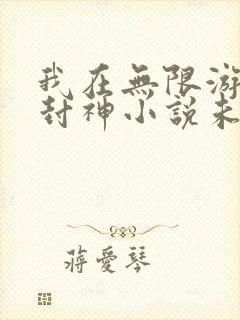 我在無限游
封神小説未
蔣愛琴